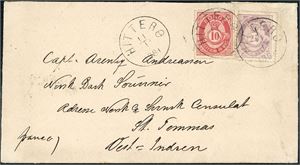 HITTERÖ
10
Capt. Arentz Andreassen
Norsk Bark
Adresse Norsk & Svensk Consulat
St. Tommas
Vest=Indien